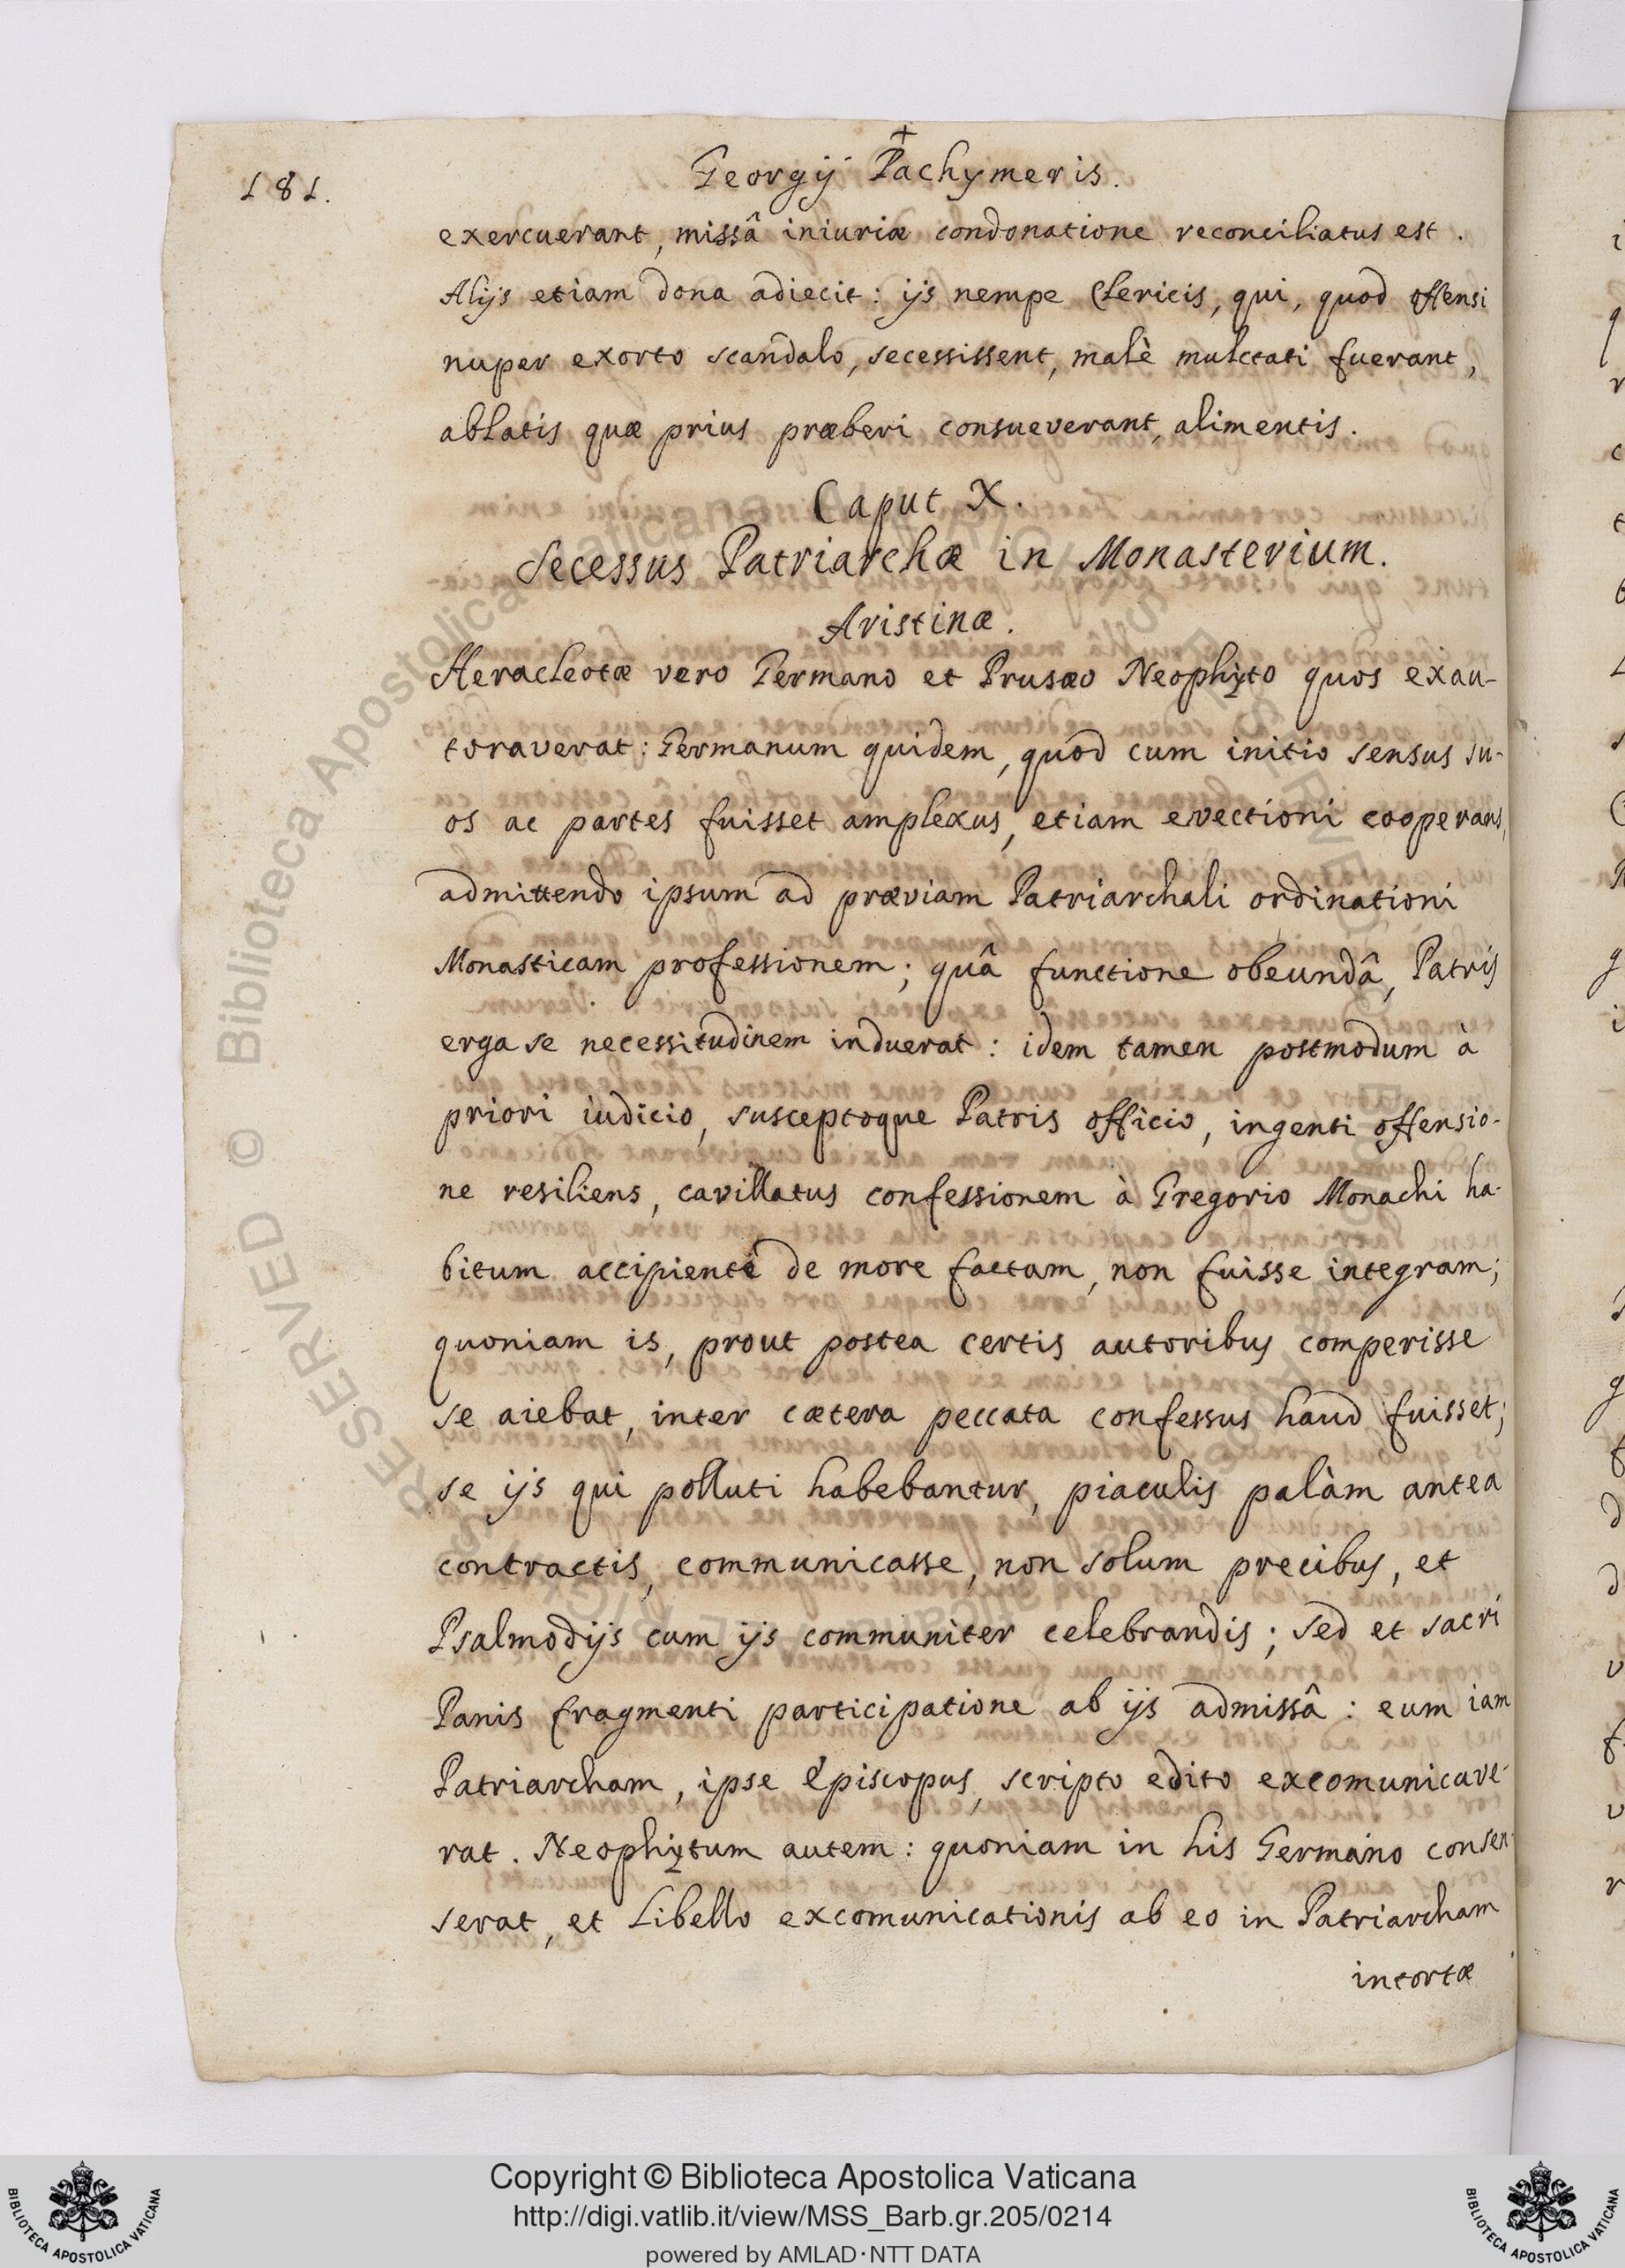 +
181. Georgij Pachymeris.
exercuerant, missâ iniuriæ condonatione reconciliatus est.
Alijs etiam dona adiecit: ijs nempe Clericis, qui, quod offensi
nuper exorto scandalo, secessissent, malè mulctati fuerant,
ablatis quæ prius præberi consueverant, alimentis.
Caput X.
Secessus Patriarchæ in Monasterium.
Aristinæ.
Heracleotæ vero Germano et Prusæo Neophyto quos exau-
toraverat: Germanum quidem, quod cum initio sensus su-
os ac partes fuisset amplexus, etiam evectioni cooperans,
admittendo ipsum ad præviam Patriarchali ordinationi
Monasticam professionem; quâ functione obeundâ, Patris
erga se necessitudinem induerat: idem tamen postmodum à
priori iudicio, susceptoque Patris officio, ingenti offensio-
ne resiliens, cavillatus confessionem à Gregorio Monachi ha-
bitum accipiente de more factam, non fuisse integram;
quoniam is, prout postea certis autoribus comperisse
se aiebat, inter cætera peccata confessus haud fuisset;
se ijs qui polluti habebantur, piaculis palàm antea
contractis, communicasse, non solum precibus, et
Psalmodijs cum ijs communiter celebrandis; sed et sacri
Panis fragmenti participatione ab ijs admissâ: eum iam
Patriarcham, ipse Episcopus, scripto edito excomunicave-
rat. Neophytum autem: quoniam in his Germano consen-
serat, et Libello excomunicationis ab eo in Patriarcham
intortæ
Copyright © Biblioteca Apostolica Vaticana
http://digi.vatlib.it/view/MSS_Barb.gr.205/0214
powered by AMLAD·NTT DATA
BIBLIOTECA APOSTOLICA VATICANA
BIBLIOTECA APOSTOLICA VATICANA